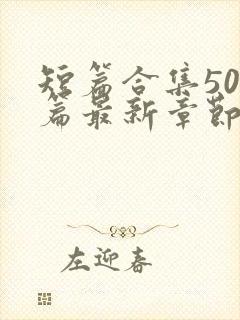 短篇合集50
篇最新章节
左迎春